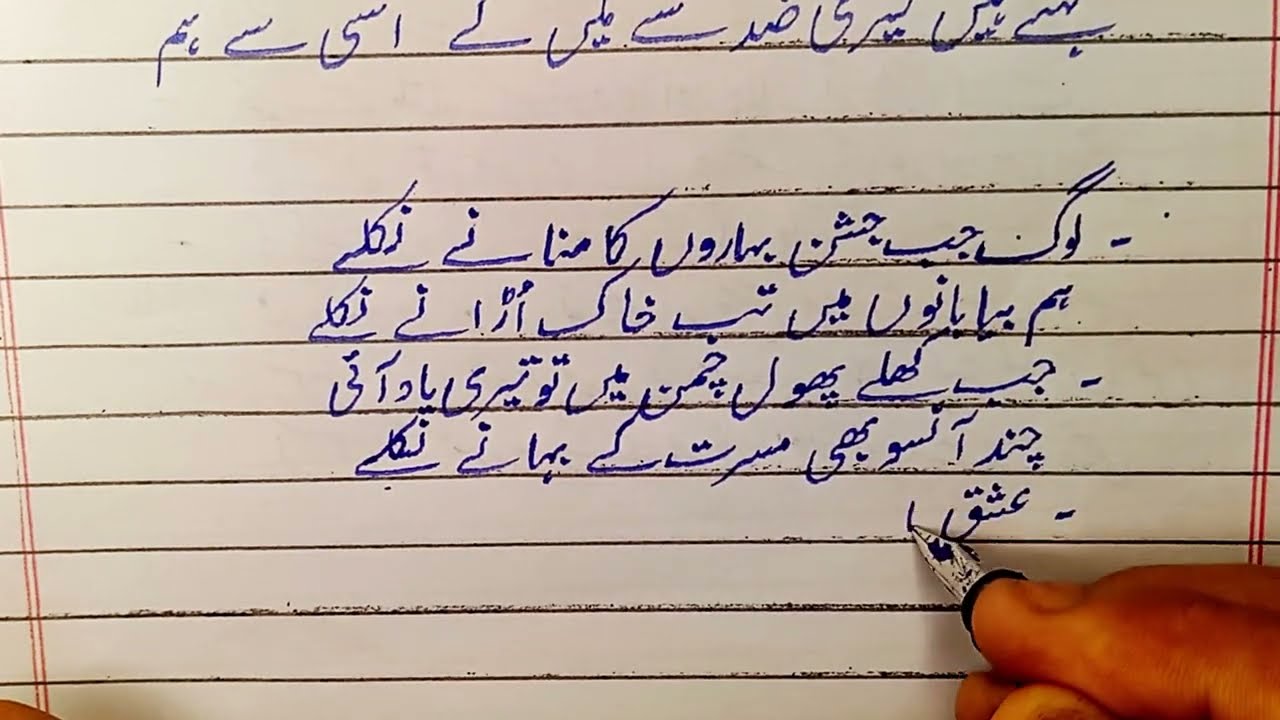 کہتے ہیں تیری ضد سے ملیں گے اسی سے ہم
- لوگ جب جشن بہاروں کا منانے نکلے
ہم بیابانوں میں تب خاک اُڑانے نکلے
- جب کھلے پھول چمن میں تو تیری یاد آئی
چند آنسو بھی مسرت کے بہانے نکلے
- عشق ا